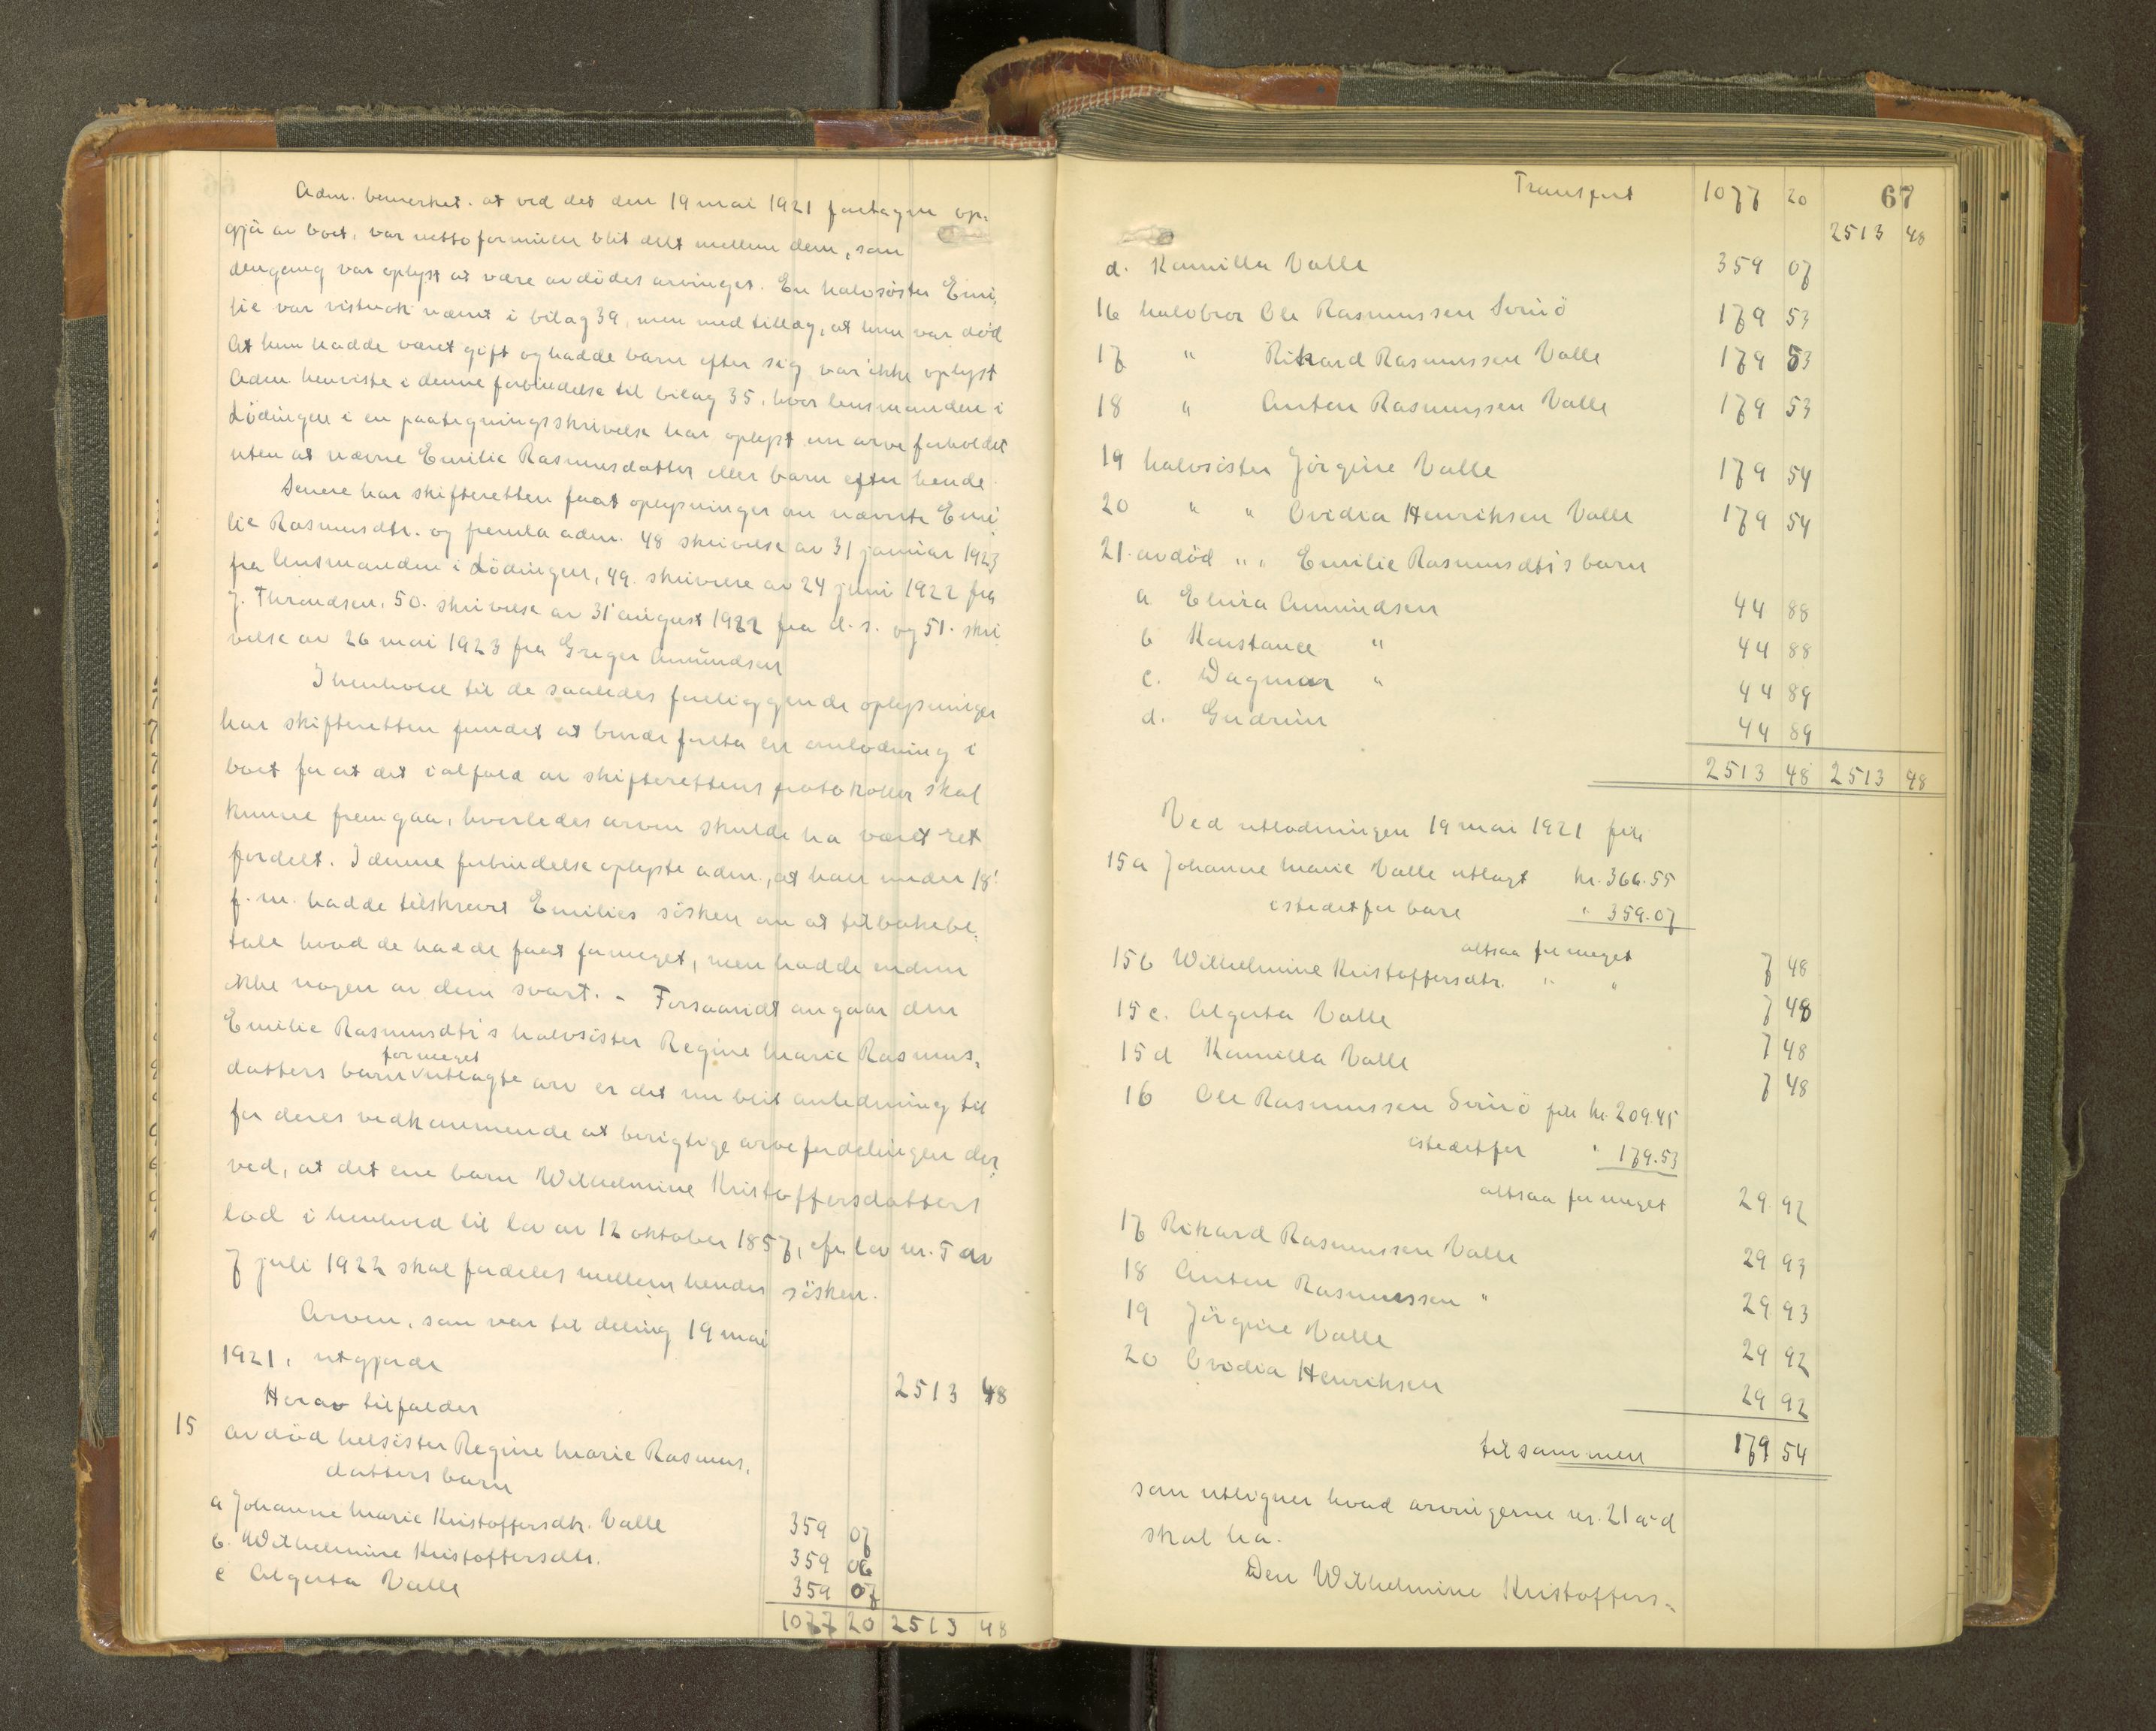 Adm. bemerket. at ved det den 19 mai 1921 foretagne op-
gjör av boet, var nettoformuen blit delt mellem dem, som
dengang var oplyst at være avdödes arvinger. En halvsöster Emi-
lie var vistnok nævnt i bilag 39, men med tillæg, at hun var död
At hun hadde været gift og hadde barn efter sig var ikke oplyst
Adm. henviste i denne forbindelse til bilag 35, hvor lensmanden i
Lödingen i en paategningsskrivelse har oplyst om arveforholdet
uten at nævne Emilie Rasmusdatter eller barn efter hende.
Senere har skifteretten faat oplysninger om nævnte Emi
lie Rasmusdtr. og fremla adm. 48 skrivelse av 31 januar 1923
fra lensmanden i Lödingen, 49. skrivelse av 24 juni 1922 fra
J. Throndsen, 50. skrivelse av 31 august 1922 fra d. s. og 51. skri
velse av 26 mai 1923 fra Greger Amundsen
I henhold til de saaledes foreliggende oplysninger
har skifteretten fundet at burde foreta en omlodning i
boet for at det ialfald av skifterettens protokoller skal
kunne fremgaa, hvorledes arven skulde ha været ret
fordelt. I denne forbindelse oplyste adm., at han under 18'
f. m. hadde tilskrevet Emilies sösken om at tilbakebe-
tale hvad de hadde faat formeget, men hadde endnu
ikke nogen av dem svart. - Forsaavidt angaar den
Emilie Rasmusdtr's halvsöster Regine Marie Rasmus-
formeget
datters barn utlagte arv er det nu blit anledning til
for deres vedkommende at berigtige arvefordelingen der-
ved, at det ene barn Wilhelmine Kristoffersdatters
lod i henhold til lov av 12 oktober 1857, cfr. lov nr. 5 av
7 juli 1922 skal fordeles mellem hendes sösken.
Arven, som var til deling 19 mai
1921, utgjorde 2513 48
Herav tilfalder
15 avdöd helsöster Regine Marie Rasmus-
datters barn
a Johanne Marie Kristoffersdtr. Valle 359 07
b. Wilhelmine Kristoffersdtr. 359 06
c Algerta Valle 359 07
1077 20 2513 48
67
Transport 1077 20
2513 48
d. Kamilla Valle 359 07
16 halvbror Ole Rasmussen Svinö 179 53
17 " Rikard Rasmussen Valle 179 53
18 " Anton Rasmussen Valle 179 53
19 halvsöster Jörgine Valle 179 54
20 " " Ovidia Henriksen Valle 179 54
21. avdöd " " Emilie Rasmusdtr's barn
a Elvira Amundsen 44 88
b Konstance " 44 88
c. Dagmar " 44 89
d. Gudrun 44 89
2513 48 2513 48
Ved utlodningen 19 mai 1921 fik
15 a Johanne Marie Valle utlagt kr. 366.55
istedetfor bare " 359.07
altsaa for meget 7 48
15 b Wilhelmine Kristoffersdtr. " " 7 48
15 c. Algerta Valle 7 48
15 d Kamilla Valle 7 48
16 Ole Rasmussen Svinö fik kr. 209.45
istedetfor " 179.53
altsaa for meget 29 92
17 Rikard Rasmussen Valle 29 93
18 Anton Rasmussen " 29 93
19 Jörgine Valle 29 92
20 Ovidia Henriksen 29 92
tilsammen 179 54
som utligner hvad arvingerne nr. 21 a-d
skal ha.
Den Wilhelmine Kristoffers-